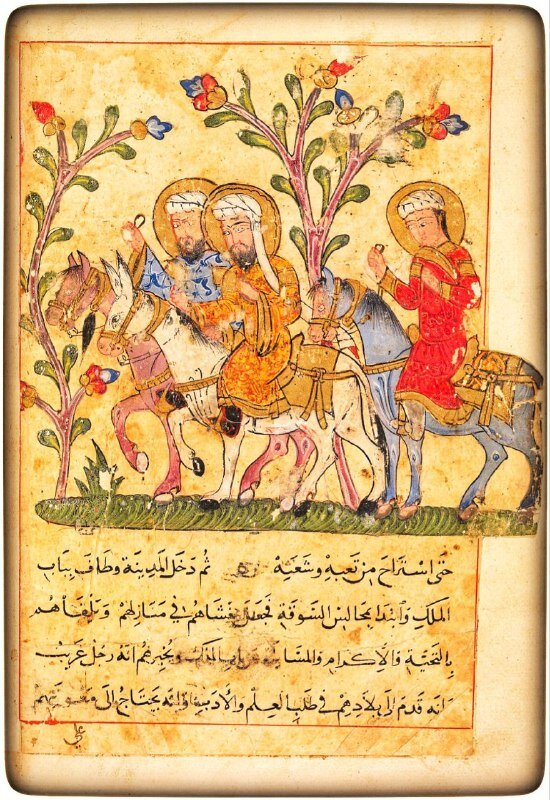 حتى استراح من تعبه وشعثه ثم دخل المدينة وطاف بباب
الملك وابتدا بمجالس السوقة فجعل يغشاهم في منازلهم ويلقاهم
بالتحية والاكرام الملك ويخبرهم انه رجل غريب
وانه قدم الى بلادهم في طلب العلم والادب وانه يحتاج الى معونتهم
على